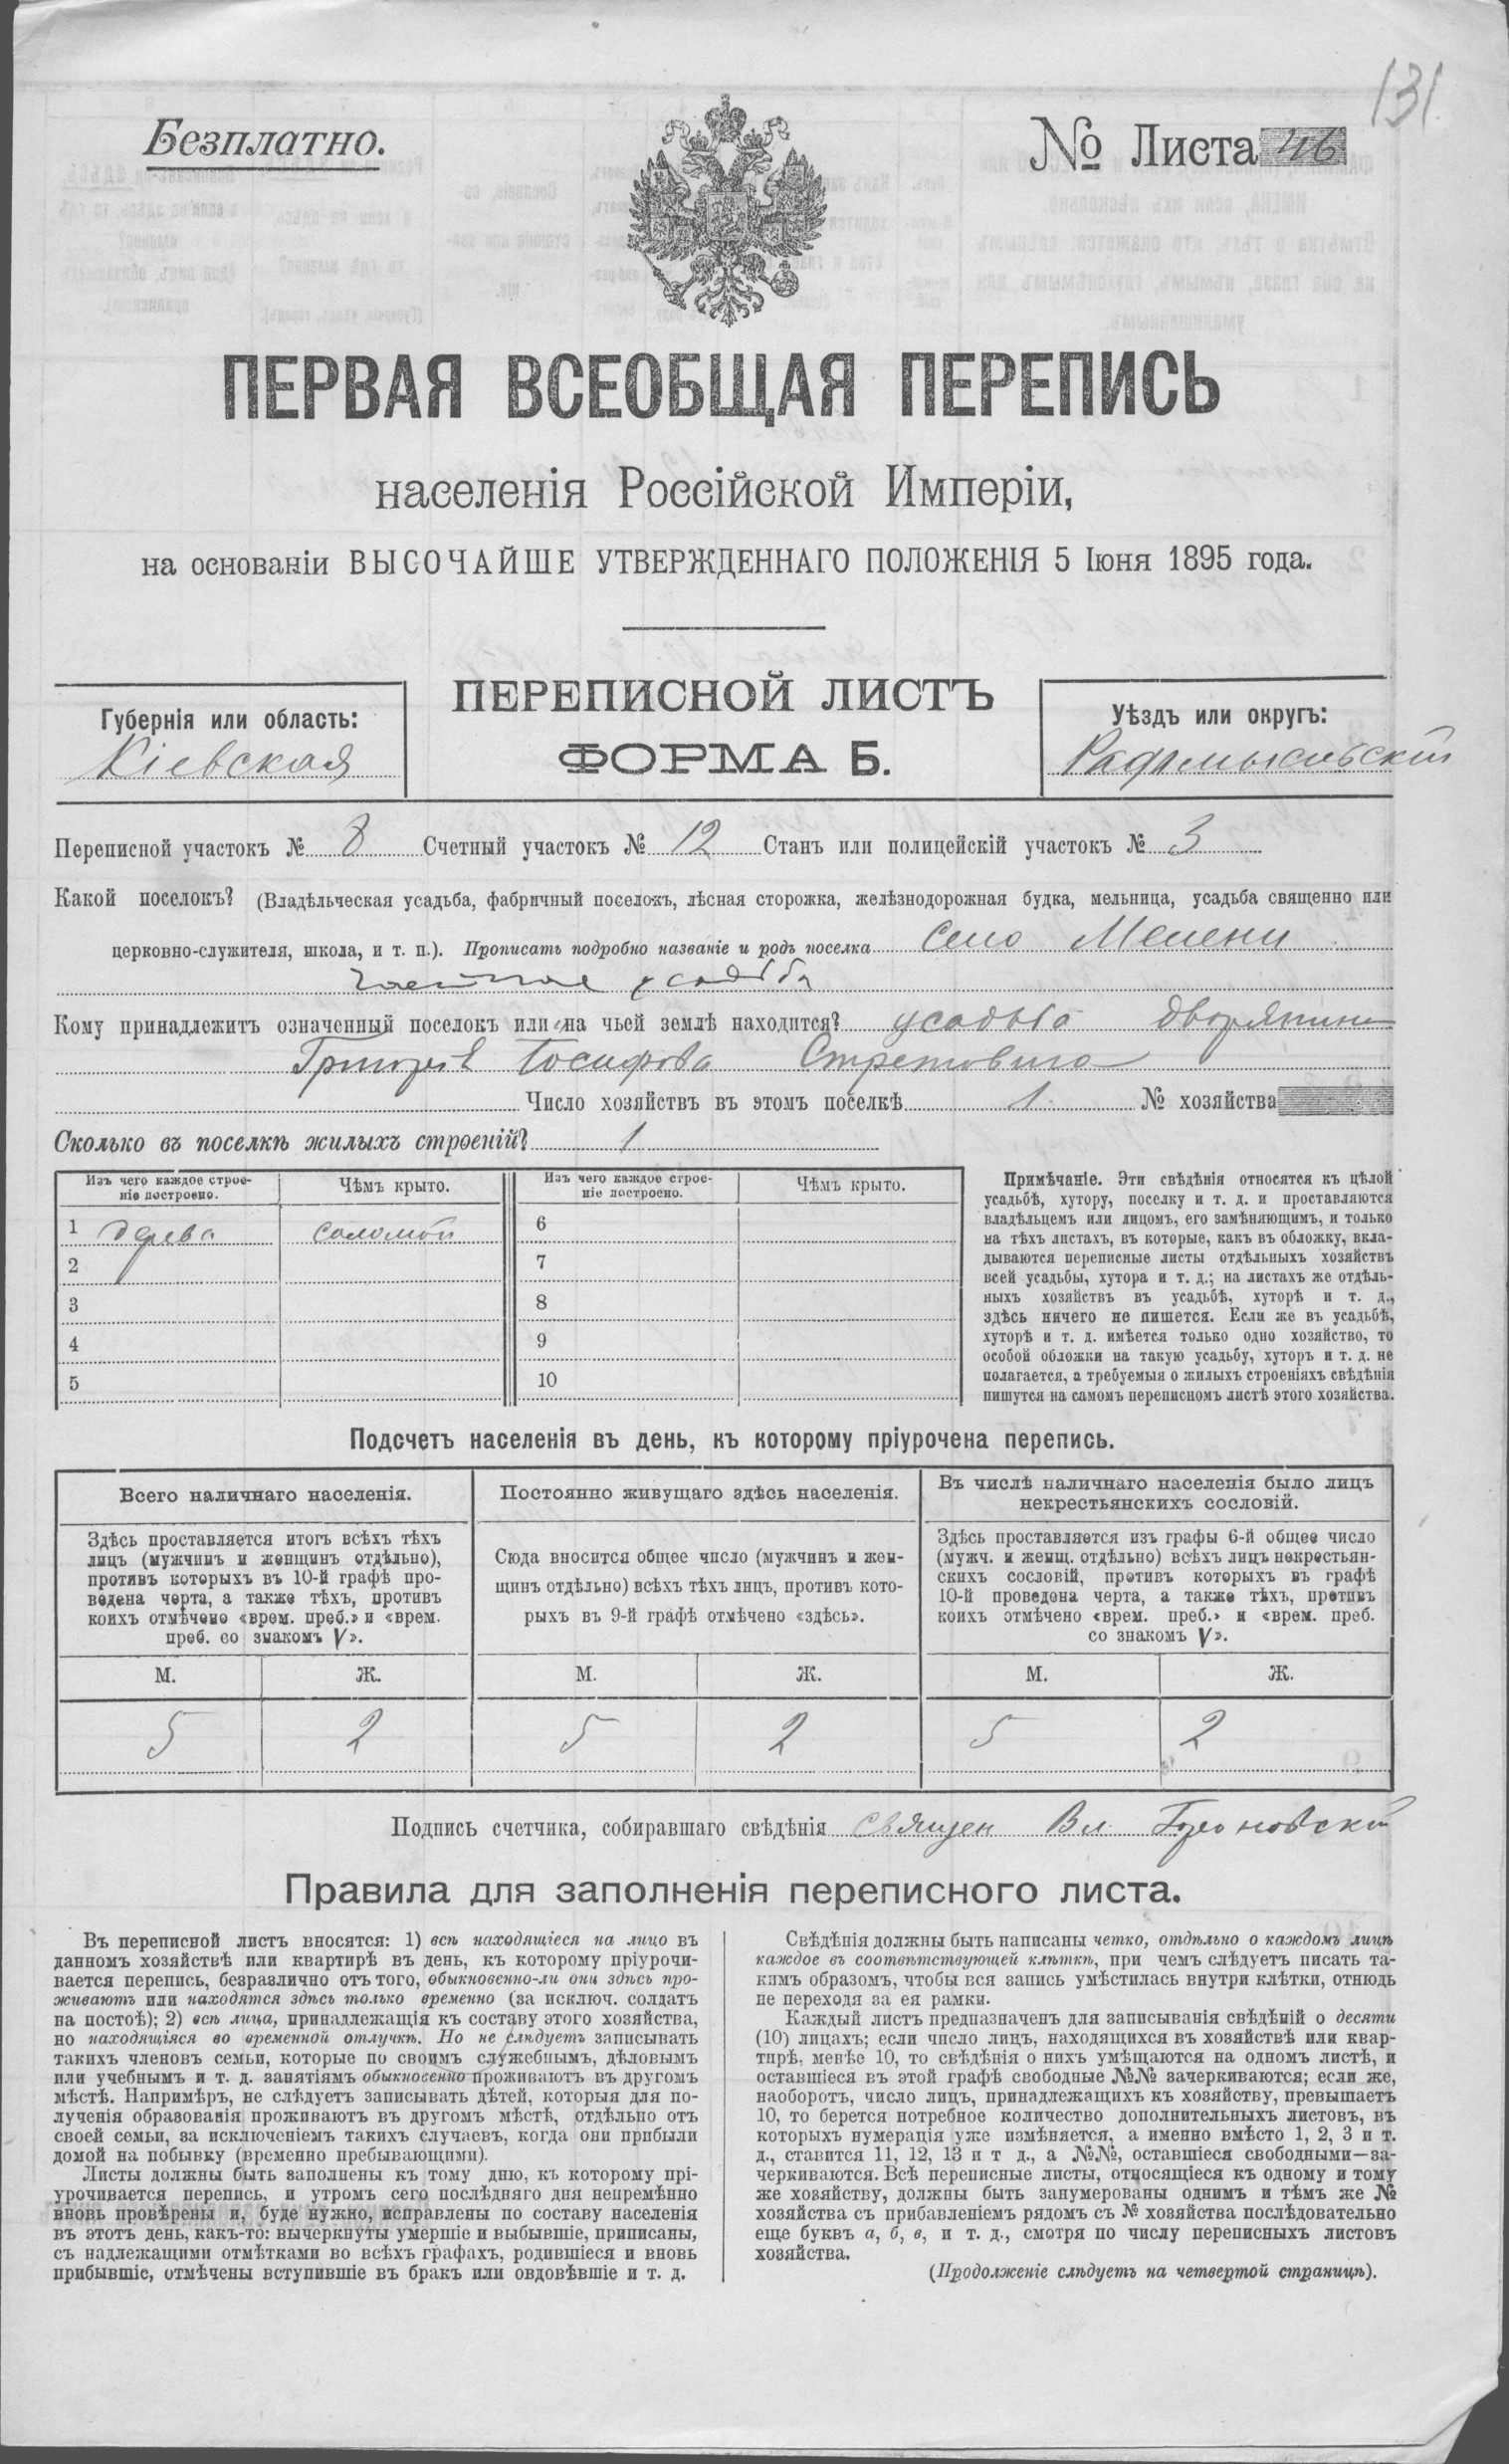 131
Безплатно.
№ Листа 46
ПЕРВАЯ ВСЕОБЩАЯ ПЕРЕПИСЬ
населенія Россійской Имперіи,
на основаніи ВЫСОЧАЙШЕ УТВЕРЖДЕННАГО ПОЛОЖЕНІЯ 5 Іюня 1895 года.
ПЕРЕПИСНОЙ ЛИСТЪ
ФОРМА Б.
Губернія или область:
Кіевская
Уѣздъ или округъ:
Радомысльскій
Переписной участокъ № 8 Счетный участокъ № 12 Станъ или полицейскій участокъ № 3
Какой поселокъ? (Владѣльческая усадьба, фабричный поселокъ, лѣсная сторожка, желѣзнодорожная будка, мельница, усадьба священно или
церковно-служителя, школа, и т. п.). Прописать подробно названіе и родъ поселка село Мелени
усадьба
Кому принадлежитъ означенный поселокъ или на чьей землѣ находится? усадьба дворянина
Григорія Іосифова
Число хозяйствъ въ этомъ поселкѣ 1 № хозяйства
Сколько въ поселкѣ жилыхъ строеній? 1
Изъ чего каждое строе-
ніе построено.
Чѣмъ крыто.
Изъ чего каждое строе-
ніе построено.
Чѣмъ крыто.
1 дерева соломой 6
2 7
3 8
4 9
5 10
Примѣчаніе. Эти свѣдѣнія относятся къ цѣлой
усадьбѣ, хутору, поселку и т. д. и проставляются
владѣльцемъ или лицомъ, его замѣняющимъ, и только
на тѣхъ листахъ, въ которые, какъ въ обложку, вкла-
дываются переписные листы отдѣльныхъ хозяйствъ
всей усадьбы, хутора и т. д.; на листахъ же отдѣль-
ныхъ хозяйствъ въ усадьбѣ, хуторѣ и т. д.,
здѣсь ничего не пишется. Если же въ усадьбѣ,
хуторѣ и т. д. имѣется только одно хозяйство, то
особой обложки на такую усадьбу, хуторъ и т. д. не
полагается, а требуемыя о жилыхъ строеніяхъ свѣдѣнія
пишутся на самомъ переписномъ листѣ этого хозяйства.
Подсчетъ населенія въ день, къ которому пріурочена перепись.
Всего наличнаго населенія.
Здѣсь проставляется итогъ всѣхъ тѣхъ
лицъ (мужчинъ и женщинъ отдѣльно),
противъ которыхъ въ 10-й графѣ про-
ведена черта, а также тѣхъ, противъ
коихъ отмѣчено «врем. преб.» и «врем.
преб. со знакомъ V».
Постоянно живущаго здѣсь населенія.
Сюда вносится общее число (мужчинъ и жен-
щинъ отдѣльно) всѣхъ тѣхъ лицъ, противъ кото-
рыхъ въ 9-й графѣ отмѣчено «здѣсь».
Въ числѣ наличнаго населенія было лицъ
некрестьянскихъ сословій.
Здѣсь проставляется изъ графы 6-й общее число
(мужч. и женщ. отдѣльно) всѣхъ лицъ некрестьян-
скихъ сословій, противъ которыхъ въ графѣ
10-й проведена черта, а также тѣхъ, противъ
коихъ отмѣчено «врем. преб.» и «врем. преб.
со знакомъ V».
М. Ж. М. Ж. М. Ж.
5 2 5 2 5 2
Подпись счетчика, собиравшаго свѣдѣнія священ Вл.
Правила для заполненія переписного листа.
Въ переписной листъ вносятся: 1) всѣ находящіеся на лицо въ
данномъ хозяйствѣ или квартирѣ въ день, къ которому пріурочи-
вается перепись, безразлично отъ того, обыкновенно-ли они здѣсь про-
живаютъ или находятся здѣсь только временно (за исключ. солдатъ
на постоѣ); 2) всѣ лица, принадлежащія къ составу этого хозяйства,
но находящіяся во временной отлучкѣ. Но не слѣдуетъ записывать
такихъ членовъ семьи, которые по своимъ служебнымъ, дѣловымъ
или учебнымъ и т. д. занятіямъ обыкновенно проживаютъ въ другомъ
мѣстѣ. Напримѣръ, не слѣдуетъ записывать дѣтей, которыя для по-
лученія образованія проживаютъ въ другомъ мѣстѣ, отдѣльно отъ
своей семьи, за исключеніемъ такихъ случаевъ, когда они прибыли
домой на побывку (временно пребывающими).
Листы должны быть заполнены къ тому дню, къ которому прі-
урочивается перепись, и утромъ сего послѣдняго дня непремѣнно
вновь провѣрены и, буде нужно, исправлены по составу населенія
въ этотъ день, какъ-то: вычеркнуты умершіе и выбывшіе, приписаны,
съ надлежащими отмѣтками во всѣхъ графахъ, родившіеся и вновь
прибывшіе, отмѣчены вступившіе въ бракъ или овдовѣвшіе и т. д.
Свѣдѣнія должны быть написаны четко, отдѣльно о каждомъ лицѣ
каждое въ соотвѣтствующей клѣткѣ, при чемъ слѣдуетъ писать та-
кимъ образомъ, чтобы вся запись умѣстилась внутри клѣтки, отнюдь
не переходя за ея рамки.
Каждый листъ предназначенъ для записыванія свѣдѣній о десяти
(10) лицахъ; если число лицъ, находящихся въ хозяйствѣ или квар-
тирѣ, менѣе 10, то свѣдѣнія о нихъ умѣщаются на одномъ листѣ, и
оставшіеся въ этой графѣ свободные №№ зачеркиваются; если же,
наоборотъ, число лицъ, принадлежащихъ къ хозяйству, превышаетъ
10, то берется потребное количество дополнительныхъ листовъ, въ
которыхъ нумерація уже измѣняется, а именно вмѣсто 1, 2, 3 и т.
д., ставится 11, 12, 13 и т д., а №№, оставшіеся свободными—за-
черкиваются. Всѣ переписные листы, относящіеся къ одному и тому
же хозяйству, должны быть занумерованы однимъ и тѣмъ же №
хозяйства съ прибавленіемъ рядомъ съ № хозяйства послѣдовательно
еще буквъ а, б, в, и т. д., смотря по числу переписныхъ листовъ
хозяйства.
(Продолженіе слѣдуетъ на четвертой страницѣ).